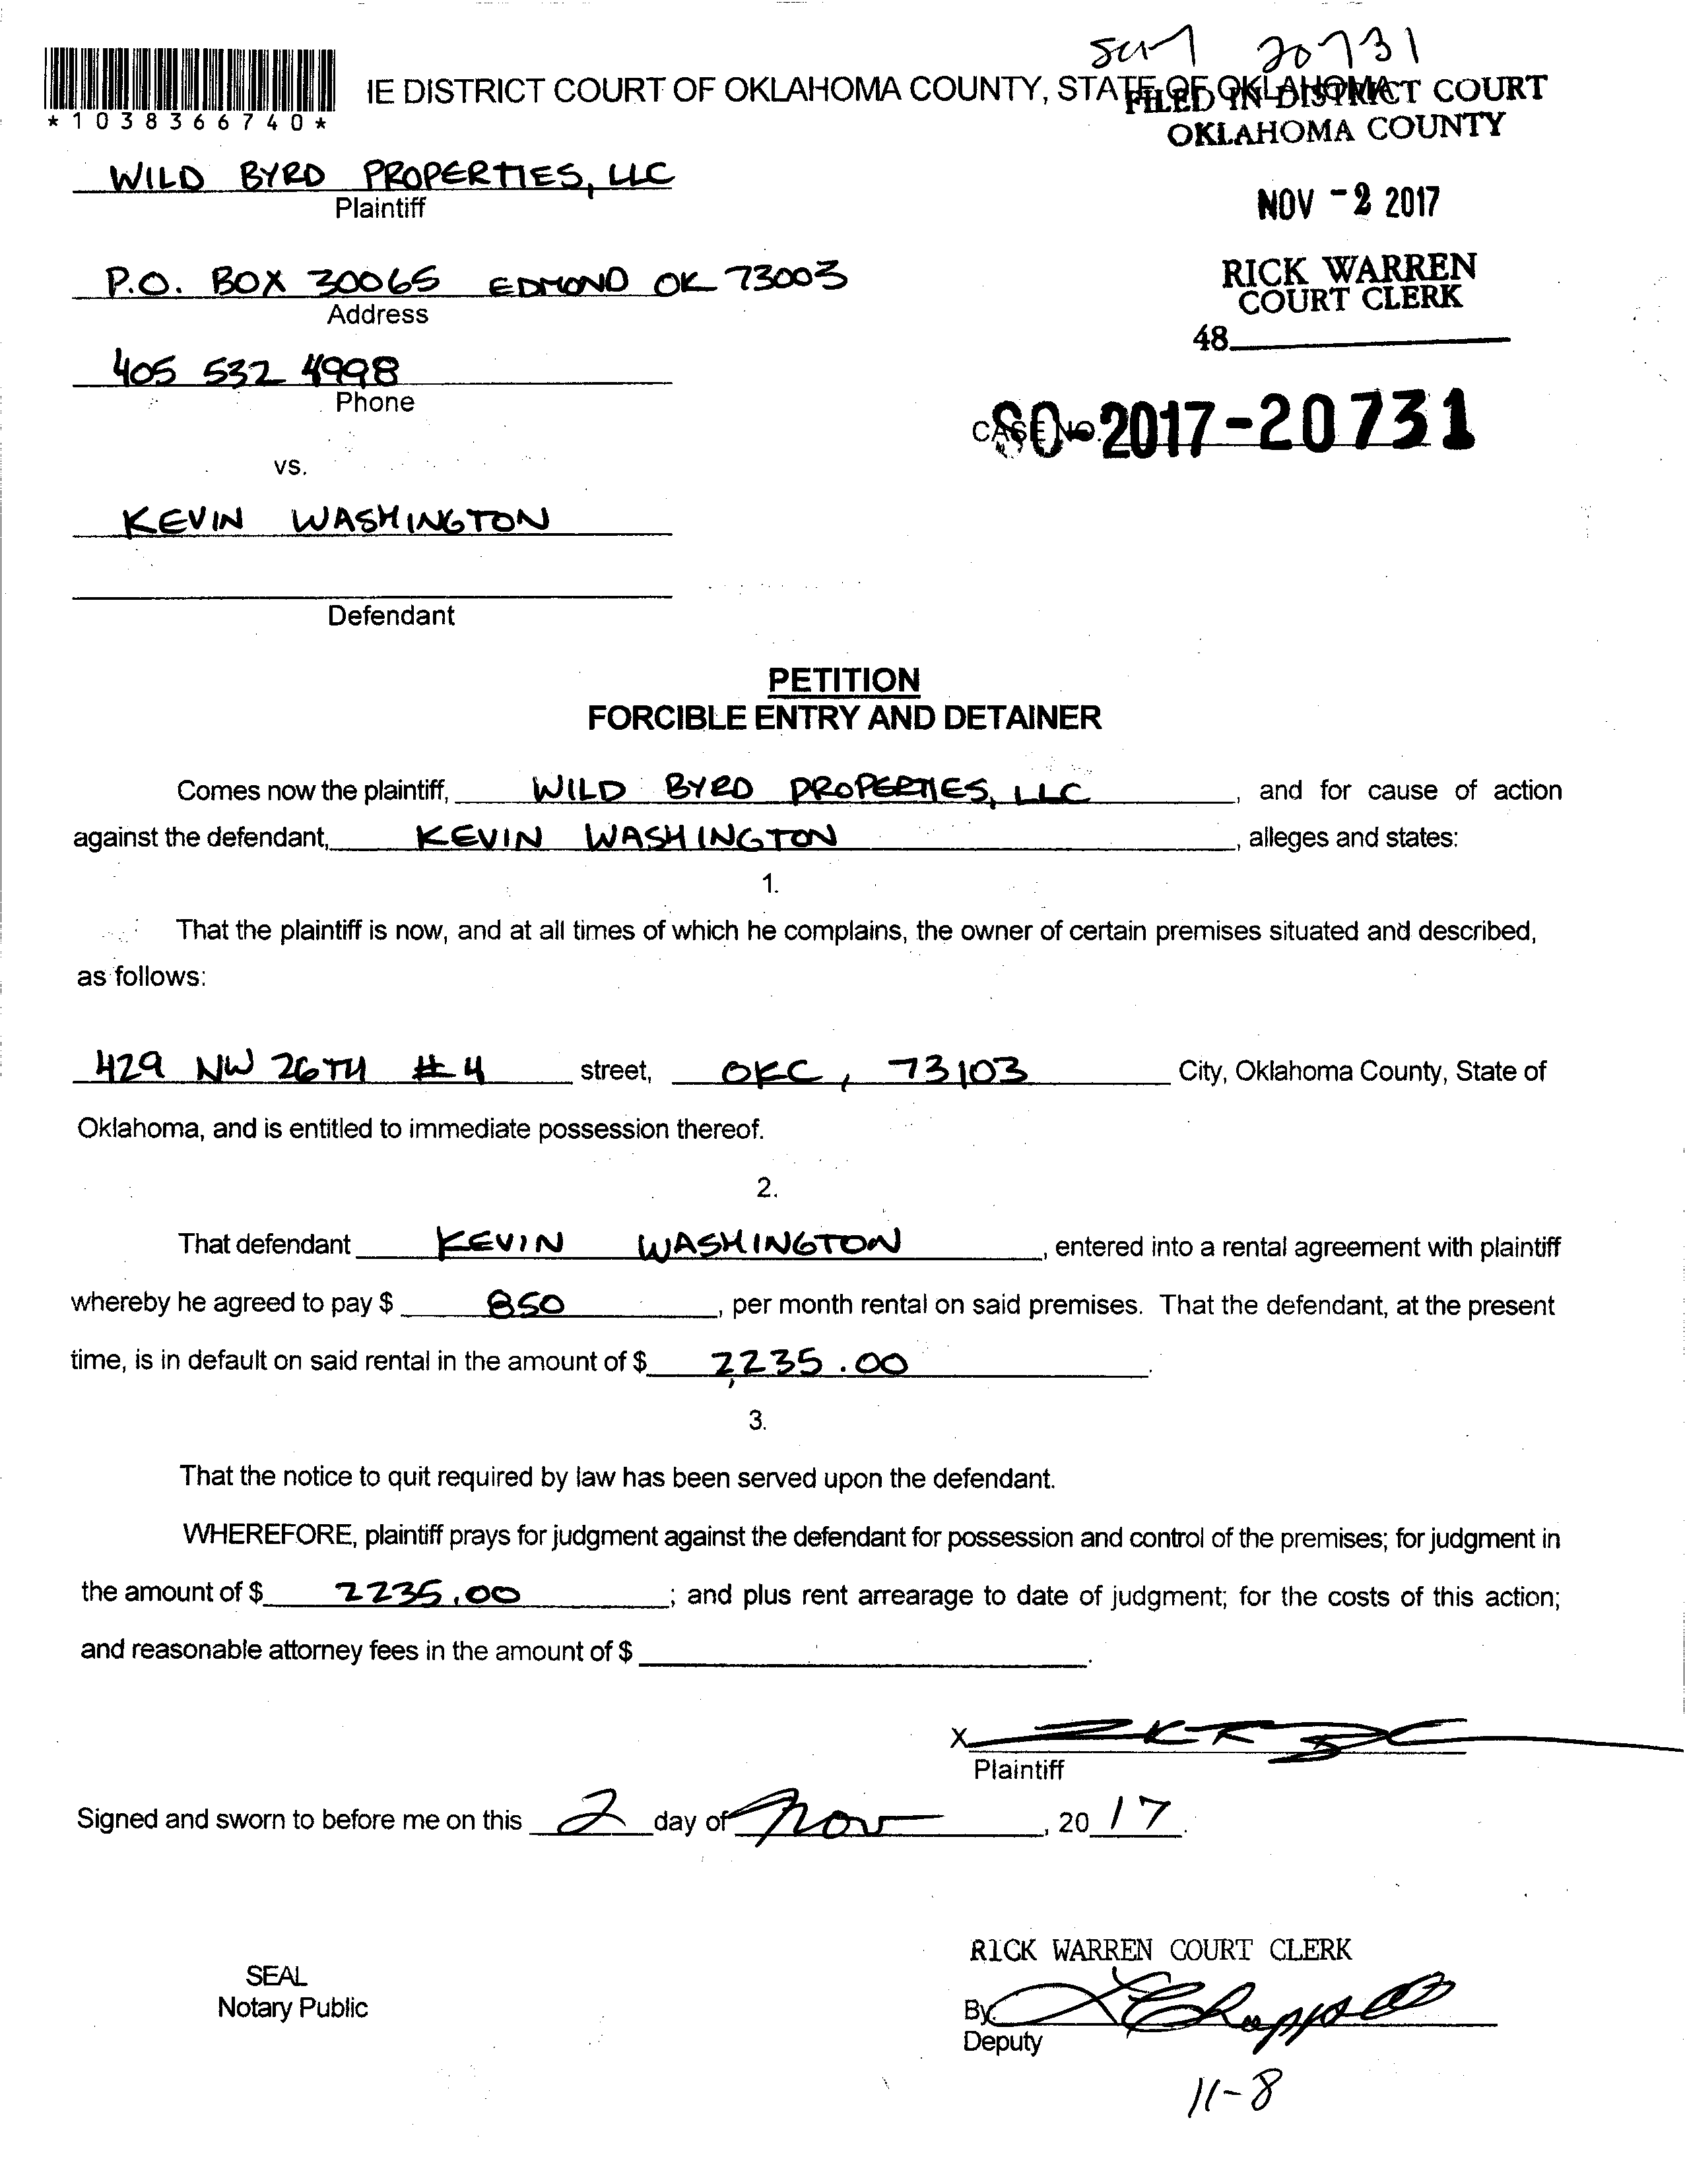 20731
IE DISTRICT COURT OF OKLAHOMA COUNTY, STATE OF OKLAHOMA
FILED IN DISTRICT COURT
OKLAHOMA COUNTY
*1038366740*
WILD BYRD PROPERTIES, LLC
Plaintiff
NOV -2 2017
P.O. BOX 30065 EDMOND OK 73003
Address
RICK WARREN
COURT CLERK
48
405 532 4998
Phone
CASE NO. SC-2017-20731
vs.
KEVIN WASHINGTON
Defendant
PETITION
FORCIBLE ENTRY AND DETAINER
Comes now the plaintiff, WILD BYRD PROPERTIES, LLC, and for cause of action
against the defendant, KEVIN WASHINGTON, alleges and states:
1.
That the plaintiff is now, and at all times of which he complains, the owner of certain premises situated and described,
as follows:
429 NW 26TH #4 street, OKC, 73103 City, Oklahoma County, State of
Oklahoma, and is entitled to immediate possession thereof.
2.
That defendant KEVIN WASHINGTON, entered into a rental agreement with plaintiff
whereby he agreed to pay $ 850, per month rental on said premises. That the defendant, at the present
time, is in default on said rental in the amount of $ 2,235.00.
3.
That the notice to quit required by law has been served upon the defendant.
WHEREFORE, plaintiff prays for judgment against the defendant for possession and control of the premises; for judgment in
the amount of $ 2235.00; and plus rent arrearage to date of judgment; for the costs of this action;
and reasonable attorney fees in the amount of $
X
Plaintiff
Signed and sworn to before me on this 2 day of Nov, 20 17.
RICK WARREN COURT CLERK
SEAL
Notary Public
By
Deputy
11-8